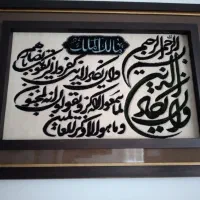 بسم الله الرحمن الرحيم
وان يكاد الذين
كفروا ليزلقونك بابصارهم
لما سمعوا الذكر ويقولون انه لمجنون
وما هو الا ذكر للعالمين